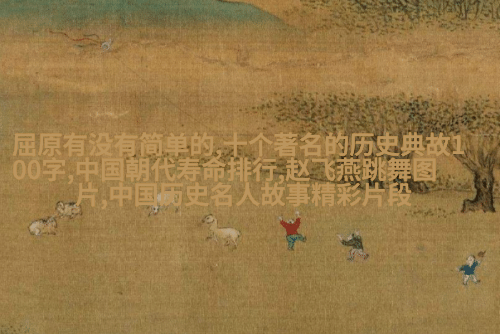 屈原有没有简单的,十个著名的历史典故1
00字,中国朝代寿命排行,赵飞燕跳舞图
片,中国历史名人故事精彩片段